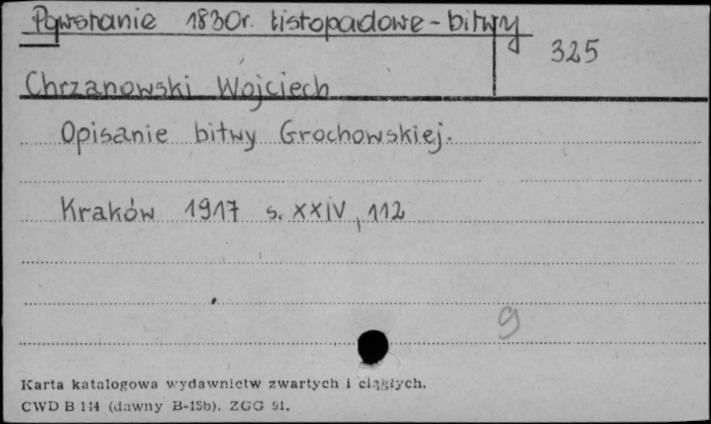 Powstanie 1830r. listopadowe - bitwy
325
Chrzanowski Wojciech
Opisanie bitwy Grochowskiej.
Kraków 1917 s. XXIV, 112
9
Karta katalogowa wydawnictw zwartych i ciągłych.
CWD B 114 (dawny B-15b). ZGG 91.